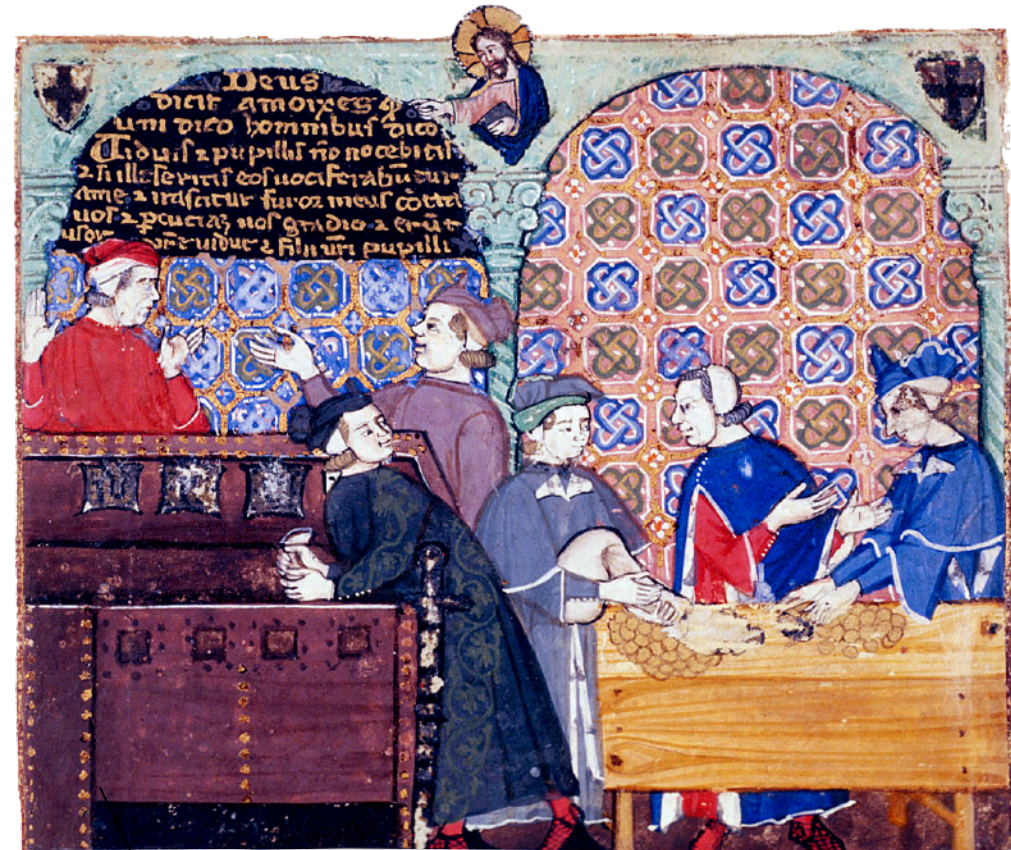 Deus
dicit amoixes q̄
uni dico hominibus dico
Viduis ⁊ pupillis nō nocebitis
⁊ si illeseritis eos uociferabūtur
ame ⁊ irascitur furor meus cōtra
uos ⁊ ꝑcuciaz uos gladio ⁊ erūt
uidue ⁊ filii ur̄i pupilli